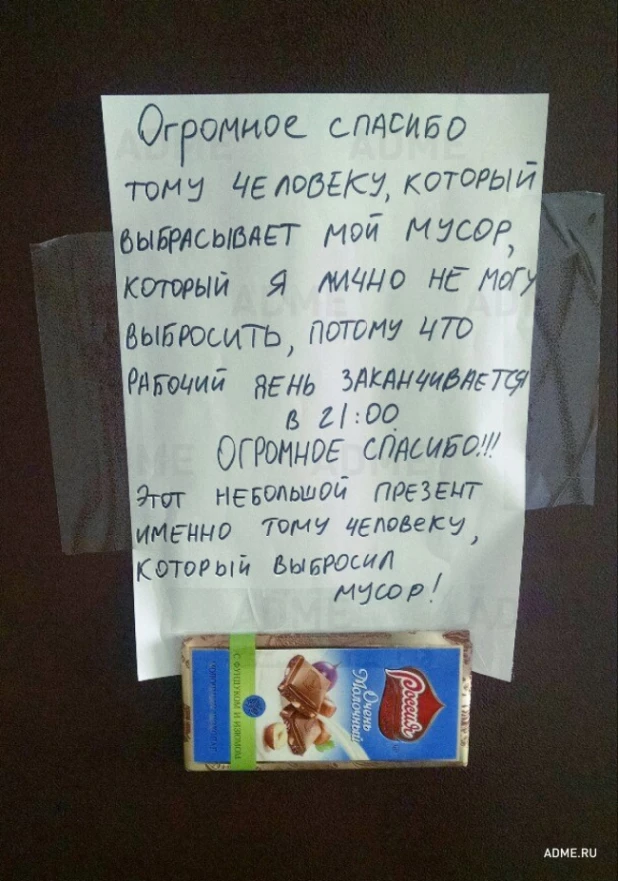 Огромное спасибо
тому человеку, который
выбрасывает мой мусор,
который я лично не могу
выбросить, потому что
рабочий день заканчивается
в 21:00.
Огромное спасибо!!!
Этот небольшой презент
именно тому человеку,
который выбросил
мусор!
Россия
Очень
Молочный
С ФУНДУКОМ И ИЗЮМОМ
ADME.RU